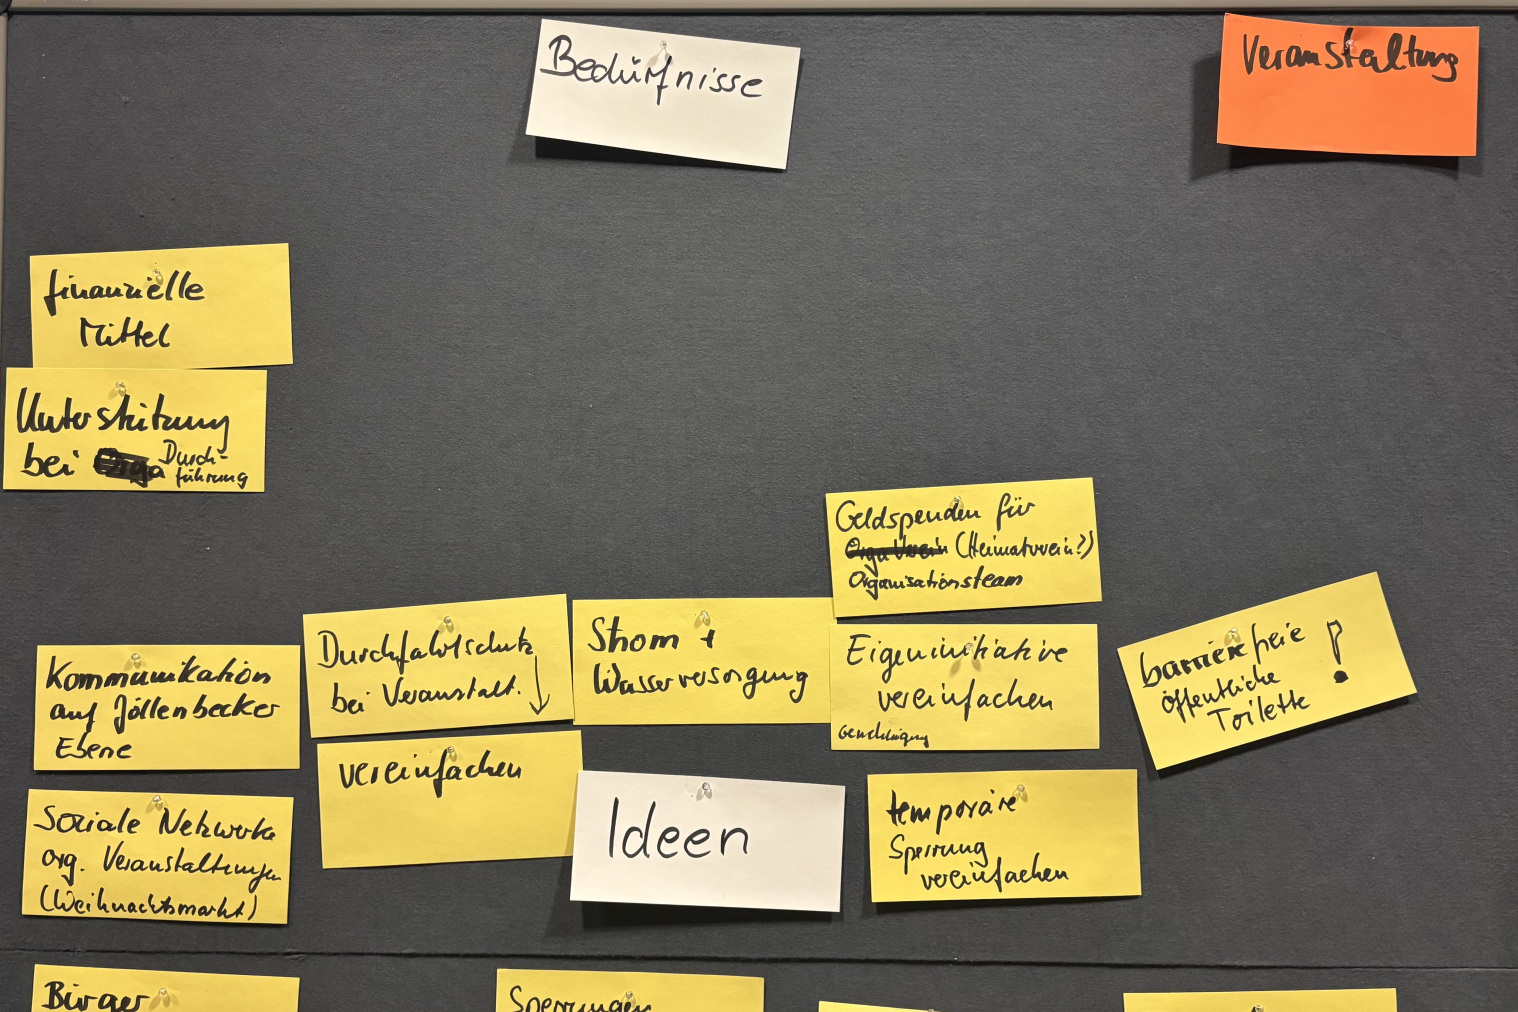 Bedürfnisse
Veranstaltung
finanzielle
Mittel
Unterstützung
bei Orga Durch-
führung
Geldspenden für
Orga Verein (Heimatverein?)
Organisationsteam
Kommunikation
auf Jöllenbecker
Ebene
Durchfahrtschutz
bei Veranstalt. ↓
vereinfachen
Strom +
Wasserversorgung
Eigeninitiative
vereinfachen
Genehmigung
barrierefreie
öffentliche
Toilette !
Soziale Netzwerke
org. Veranstaltungen
(Weihnachtsmarkt)
Ideen
temporäre
Sperrung
vereinfachen
Bürger
Sperrungen